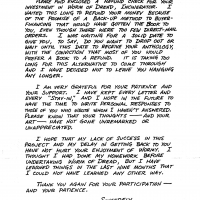 PLEASE FIND ENCLOSED A REFUND CHECK FOR YOUR
INVESTMENT IN WORM OF DREAD, ENCHANTER. I
WAITED THIS LONG TO REFUND YOUR MONEY BECAUSE
OF THE PROMISE OF A BACK-UP METHOD TO BUYER-
FINANCING THAT WOULD HAVE GOTTEN THE BOOK TO
YOU, EVEN THOUGH THERE WERE TOO FEW DIRECT-MAIL
ORDERS. I AM WAITING FOR A GOOD DATE TO
GIVE YOU, TO SAY, DO YOU WANT TO DROP OUT OR
WAIT UNTIL THIS DATE TO RECEIVE YOUR ANTHOLOGY,
WITH THE CONVICTION THAT MOST OF YOU WOULD
PREFER A BOOK TO A REFUND. IT IS TAKING TOO
LONG FOR THIS ALTERNATIVE TO COME THROUGH
AND I HAVE DECIDED NOT TO LEAVE YOU HANGING
ANY LONGER.
I AM VERY GRATEFUL FOR YOUR PATIENCE AND
YOUR SUPPORT. I HAVE KEPT EVERY LETTER AND
EVERY "STAY-IN," AND I HOPE IN THE FUTURE TO
HAVE THE TIME TO WRITE PERSONAL RESPONSES TO
THOSE OF YOU WHO WROTE WHOM I HAVEN'T ANSWERED.
PLEASE KNOW THAT YOUR THOUGHTS — AND YOUR
ART — HAVE NOT GONE UNREMEMBERED OR
UNAPPRECIATED.
I HOPE THAT MY LACK OF SUCCESS IN THIS
PROJECT AND MY DELAY IN GETTING BACK TO YOU
HAVE NOT HURT YOUR ENJOYMENT OF WORMY. I
THOUGHT I HAD DONE MY HOMEWORK BEFORE
UNDERTAKING WORM OF DREAD, BUT I HAVE
LEARNED THINGS IN THE LAST NINE MONTHS THAT I
COULD NOT HAVE LEARNED ANY OTHER WAY.
THANK YOU AGAIN FOR YOUR PARTICIPATION —
AND YOUR PATIENCE.